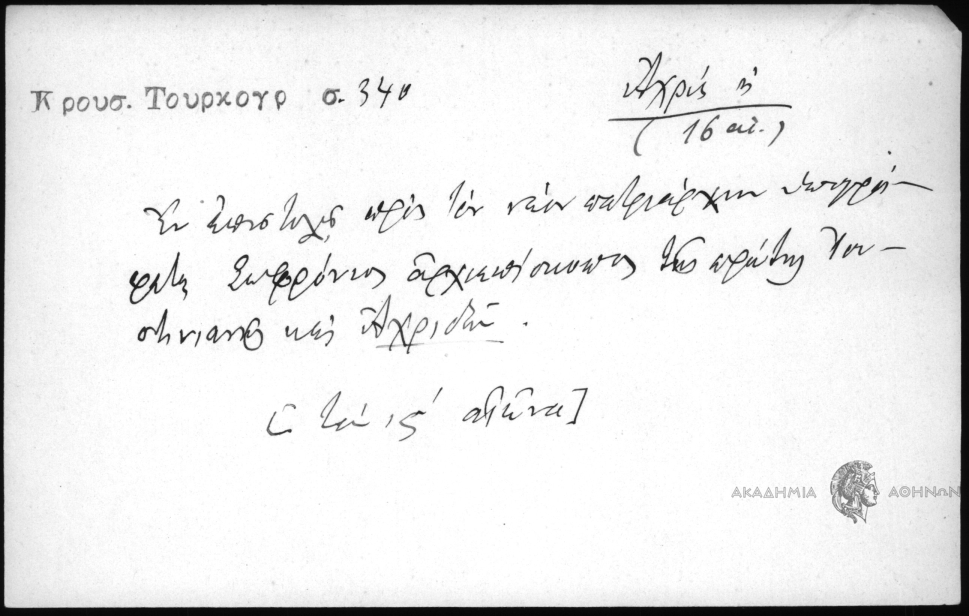 Κρουσ. Τουρκογρ σ. 340
Ἀχρίς ἡ
(16 αἰ.)
Ἐν ἐπιστολῇ πρὸς τὸν νέον πατριάρχην ὑπογρά-
φεται Σωφρόνιος ἀρχιεπίσκοπος τῆς πρώτης Ἰου-
στινιανῆς καὶ Ἀχριδῶν.
[τοῦ ις´ αἰῶνα]
ΑΚΑΔΗΜΙΑ ΑΘΗΝΩΝ